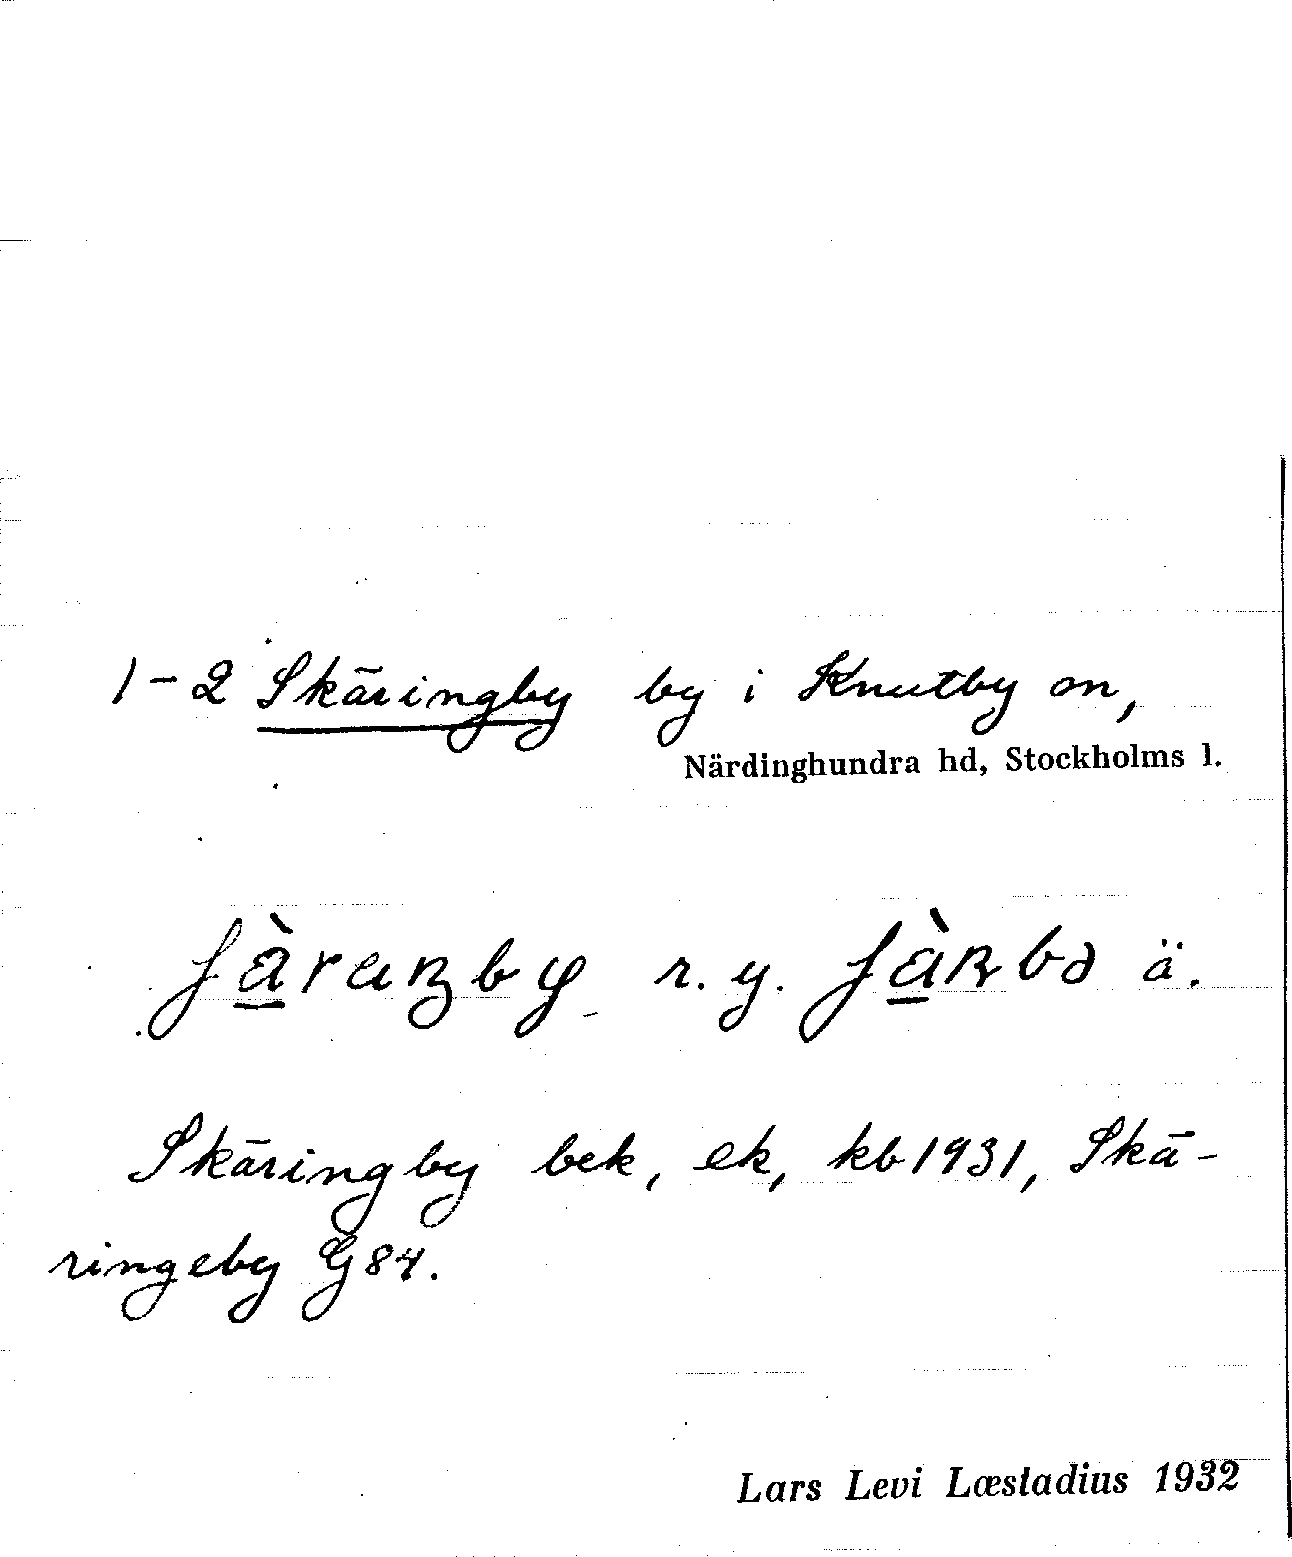 1-2 Skäringby by i Knutby sn,
Närdinghundra hd, Stockholms l.
r. y. ä.
Skäringby bek, ek, kb 1931, Skä-
ringeby G84.
Lars Levi Læstadius 1932